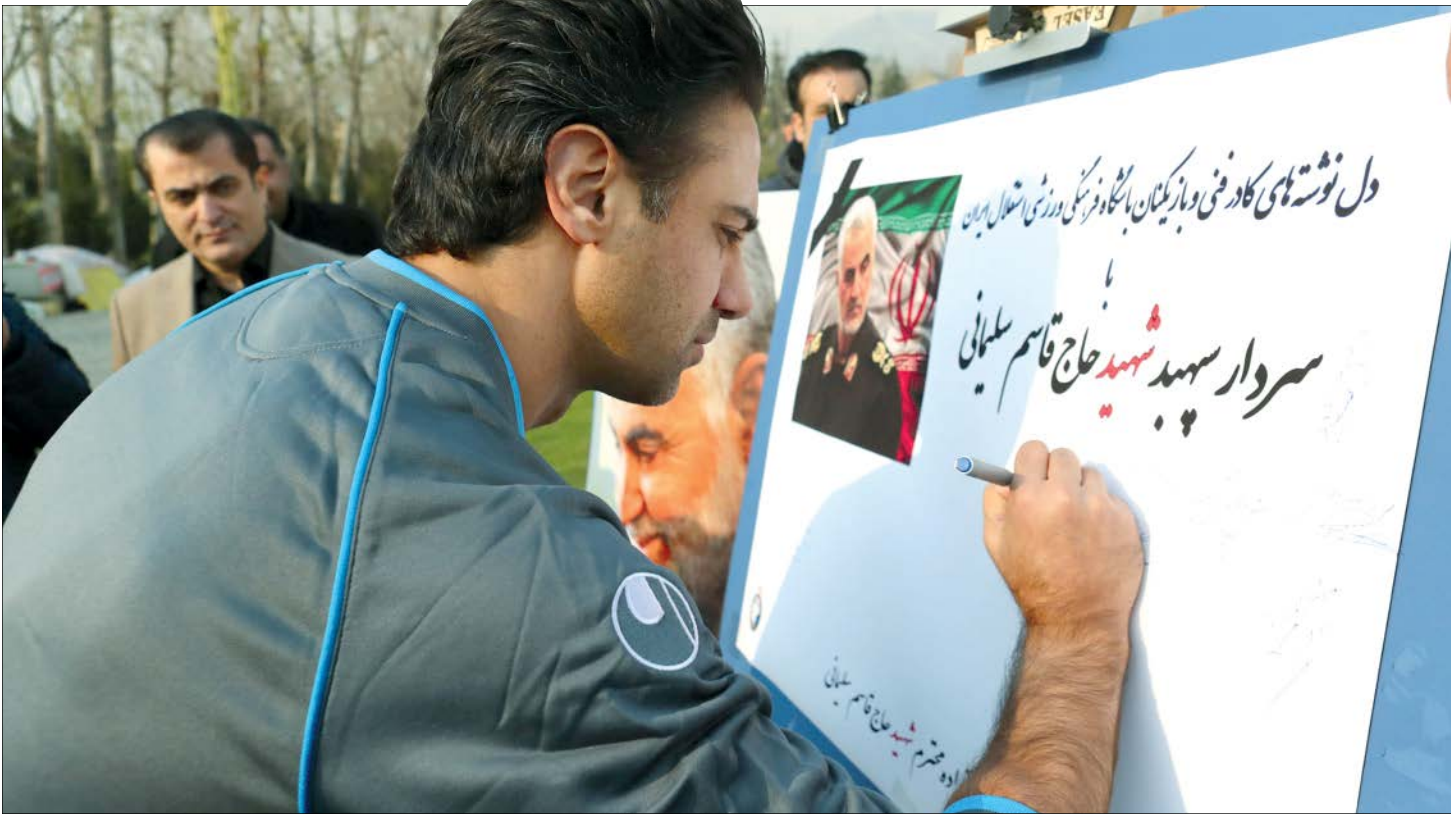 EASEL
دل نوشته های کادر فنی و بازیکنان باشگاه فرهنگی ورزشی استقلال ایران
با
سردار سپهبد شهید حاج قاسم سلیمانی
محترم شهید حاج قاسم سلیمانی